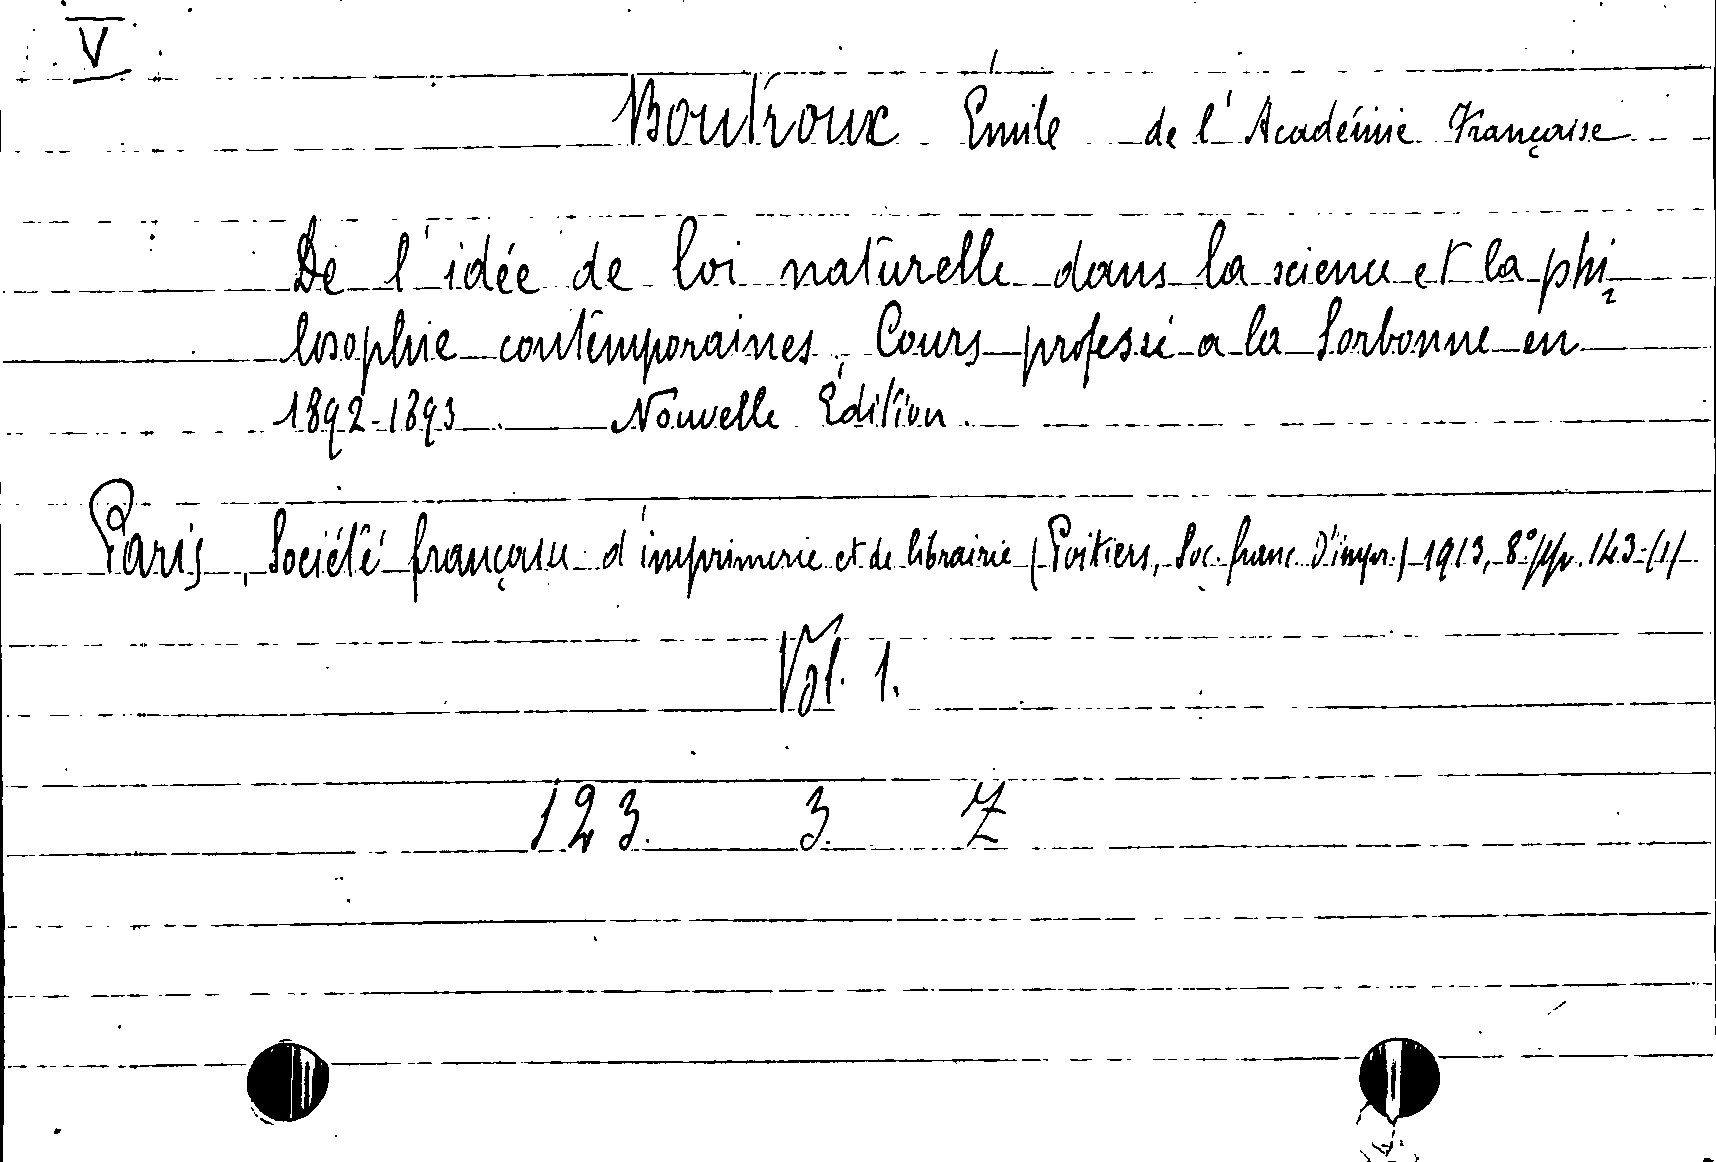 V
Boutroux Émile de l'Académie Française
De l'idée de loi naturelle dans la science et la phi=
losophie contemporaines. Cours professé a la Sorbonne en
1892-1893. Nouvelle Édition.
Paris, Société française d'imprimerie et de librairie (Poitiers, Soc. franc. d'impr.) 1913, 8° pp. 143-(1)
Vol. 1.
123. 3. Z